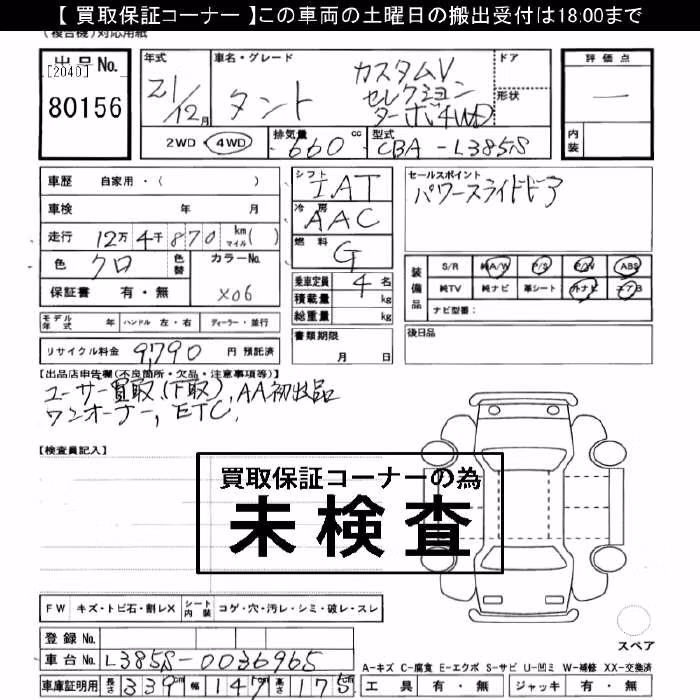 【 買取保証コーナー 】この車両の土曜日の搬出受付は18:00まで
(複合機)対応用紙
出品No. [2040] 80156
年式 21/12月
車名・グレード タント カスタムV セレクション ターボ 4WD
ドア 形状
評価点 一
内装
2WD 4WD 排気量 660 cc 型式 CBA-L385S
車歴 自家用・( )
車検 年 月
走行 12万 4千 870 km マイル ( )
色 クロ 色替 カラーNo. X06
保証書 有・無
シフト IAT
冷房 AAC
燃料 G
乗車定員 4 名
積載量 kg
総重量 kg
セールスポイント
パワースライドドア
装備品 S/R 純A/W P/S P/W ABS
純TV 純ナビ 革シート 外ナビ エアB
ナビ型番:
モデル年式 年 ハンドル 左・右 ディーラー・並行
書類期限 月 日
後日品
リサイクル料金 9,790 円 預託済
【出品店申告欄(不良箇所・欠品・注意事項等)】
ユーザー買取(下取), AA初出品
ワンオーナー, ETC,
【検査員記入】
買取保証コーナーの為
未検査
FW キズ・トビ石・割レX シート内装 コゲ・穴・汚レ・シミ・破レ・スレ
登録 No.
車台 No. L385S-0036965
スペア
A-キズ C-腐食 E-エクボ S-サビ U-凹ミ W-補修 XX-交換済
車庫証明用 長さ 339 cm 幅 147 cm 高さ 175 cm
工具 有・無 ジャッキ 有・無